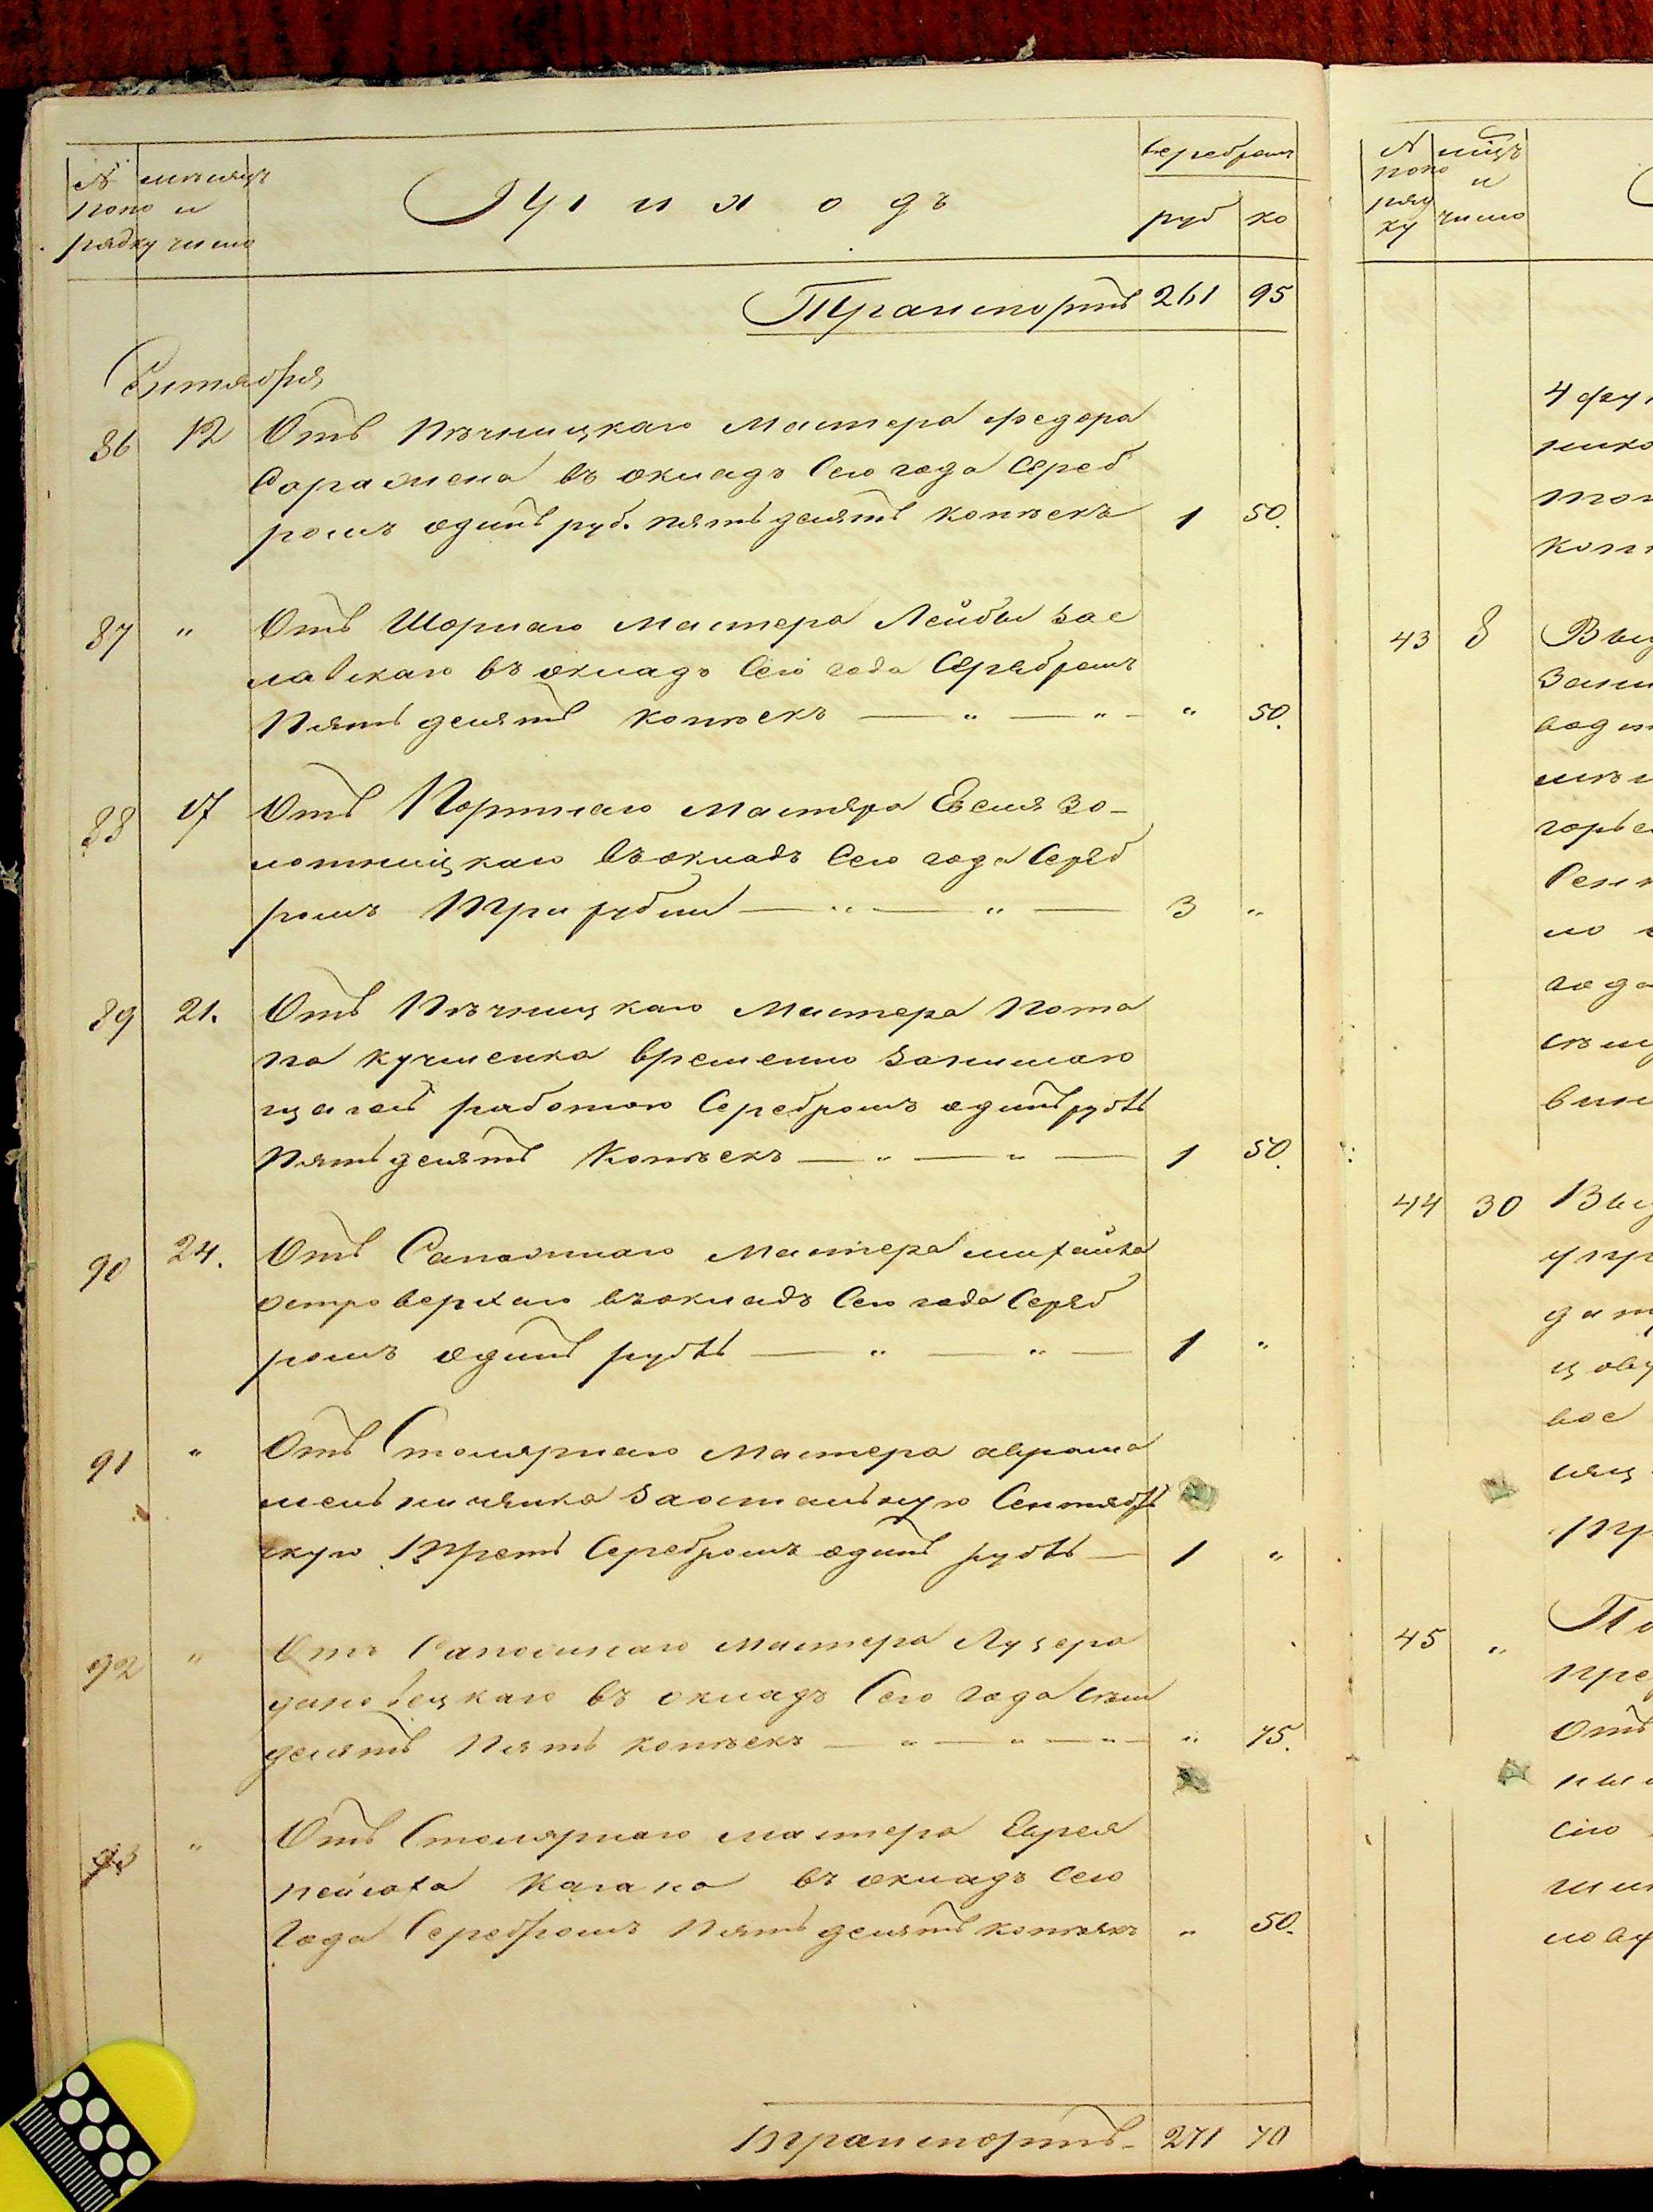 № мѣсяцъ Приходъ Серебромъ
попо и
рядку число руб ко
Транспортъ 261 95
Сентября
86 12 Отъ Пѣчницкаго Мастера Федора
Сараменa въ окладъ Сего года Сереб
ромъ одинъ руб. пятьдесятъ копѣекъ 1 50.
87 " Отъ Шорнаго Мастера Лейбы Зас
лавскаго въ окладъ Сего года Серебромъ
Пятьдесятъ копѣекъ — " — " — " 50.
88 17 Отъ Портнаго Мастера Евсея Зо-
лотницкаго въ окладъ Сего года Сереб
ромъ Три рубли — " — " — 3 "
89 21. Отъ Пѣчницкаго Мастера Пота
па кучменка временно Занимаю
щагось работою Серебромъ одинъ рубль
Пятьдесятъ Копѣекъ — " — " — 1 50.
90 24. Отъ Сапожнаго Мастера михайла
островерхаго въ окладъ Сего года Сереб
ромъ одинъ рубль — " — " — 1 "
91 " Отъ Столярнаго Мастера аврама
мельниченка Заостальную Сентябрь
скую Треть Серебромъ одинъ рубль — 1 "
92 " Отъ Сапожнаго мастера Луцера
въ окладъ Сего года семь
десятъ Пять копѣекъ — " — " — " — " 75.
93 " Отъ Столярнаго мастера Еврея
пейсаха Кагана въ окладъ Сего
Года Серебромъ Пятьдесятъ копѣекъ " 50.
Транспортъ - 271 70
№ мѣцъ
попо и
ряд число
ку
4 фу
43 8
44 30
45 "
Отъ